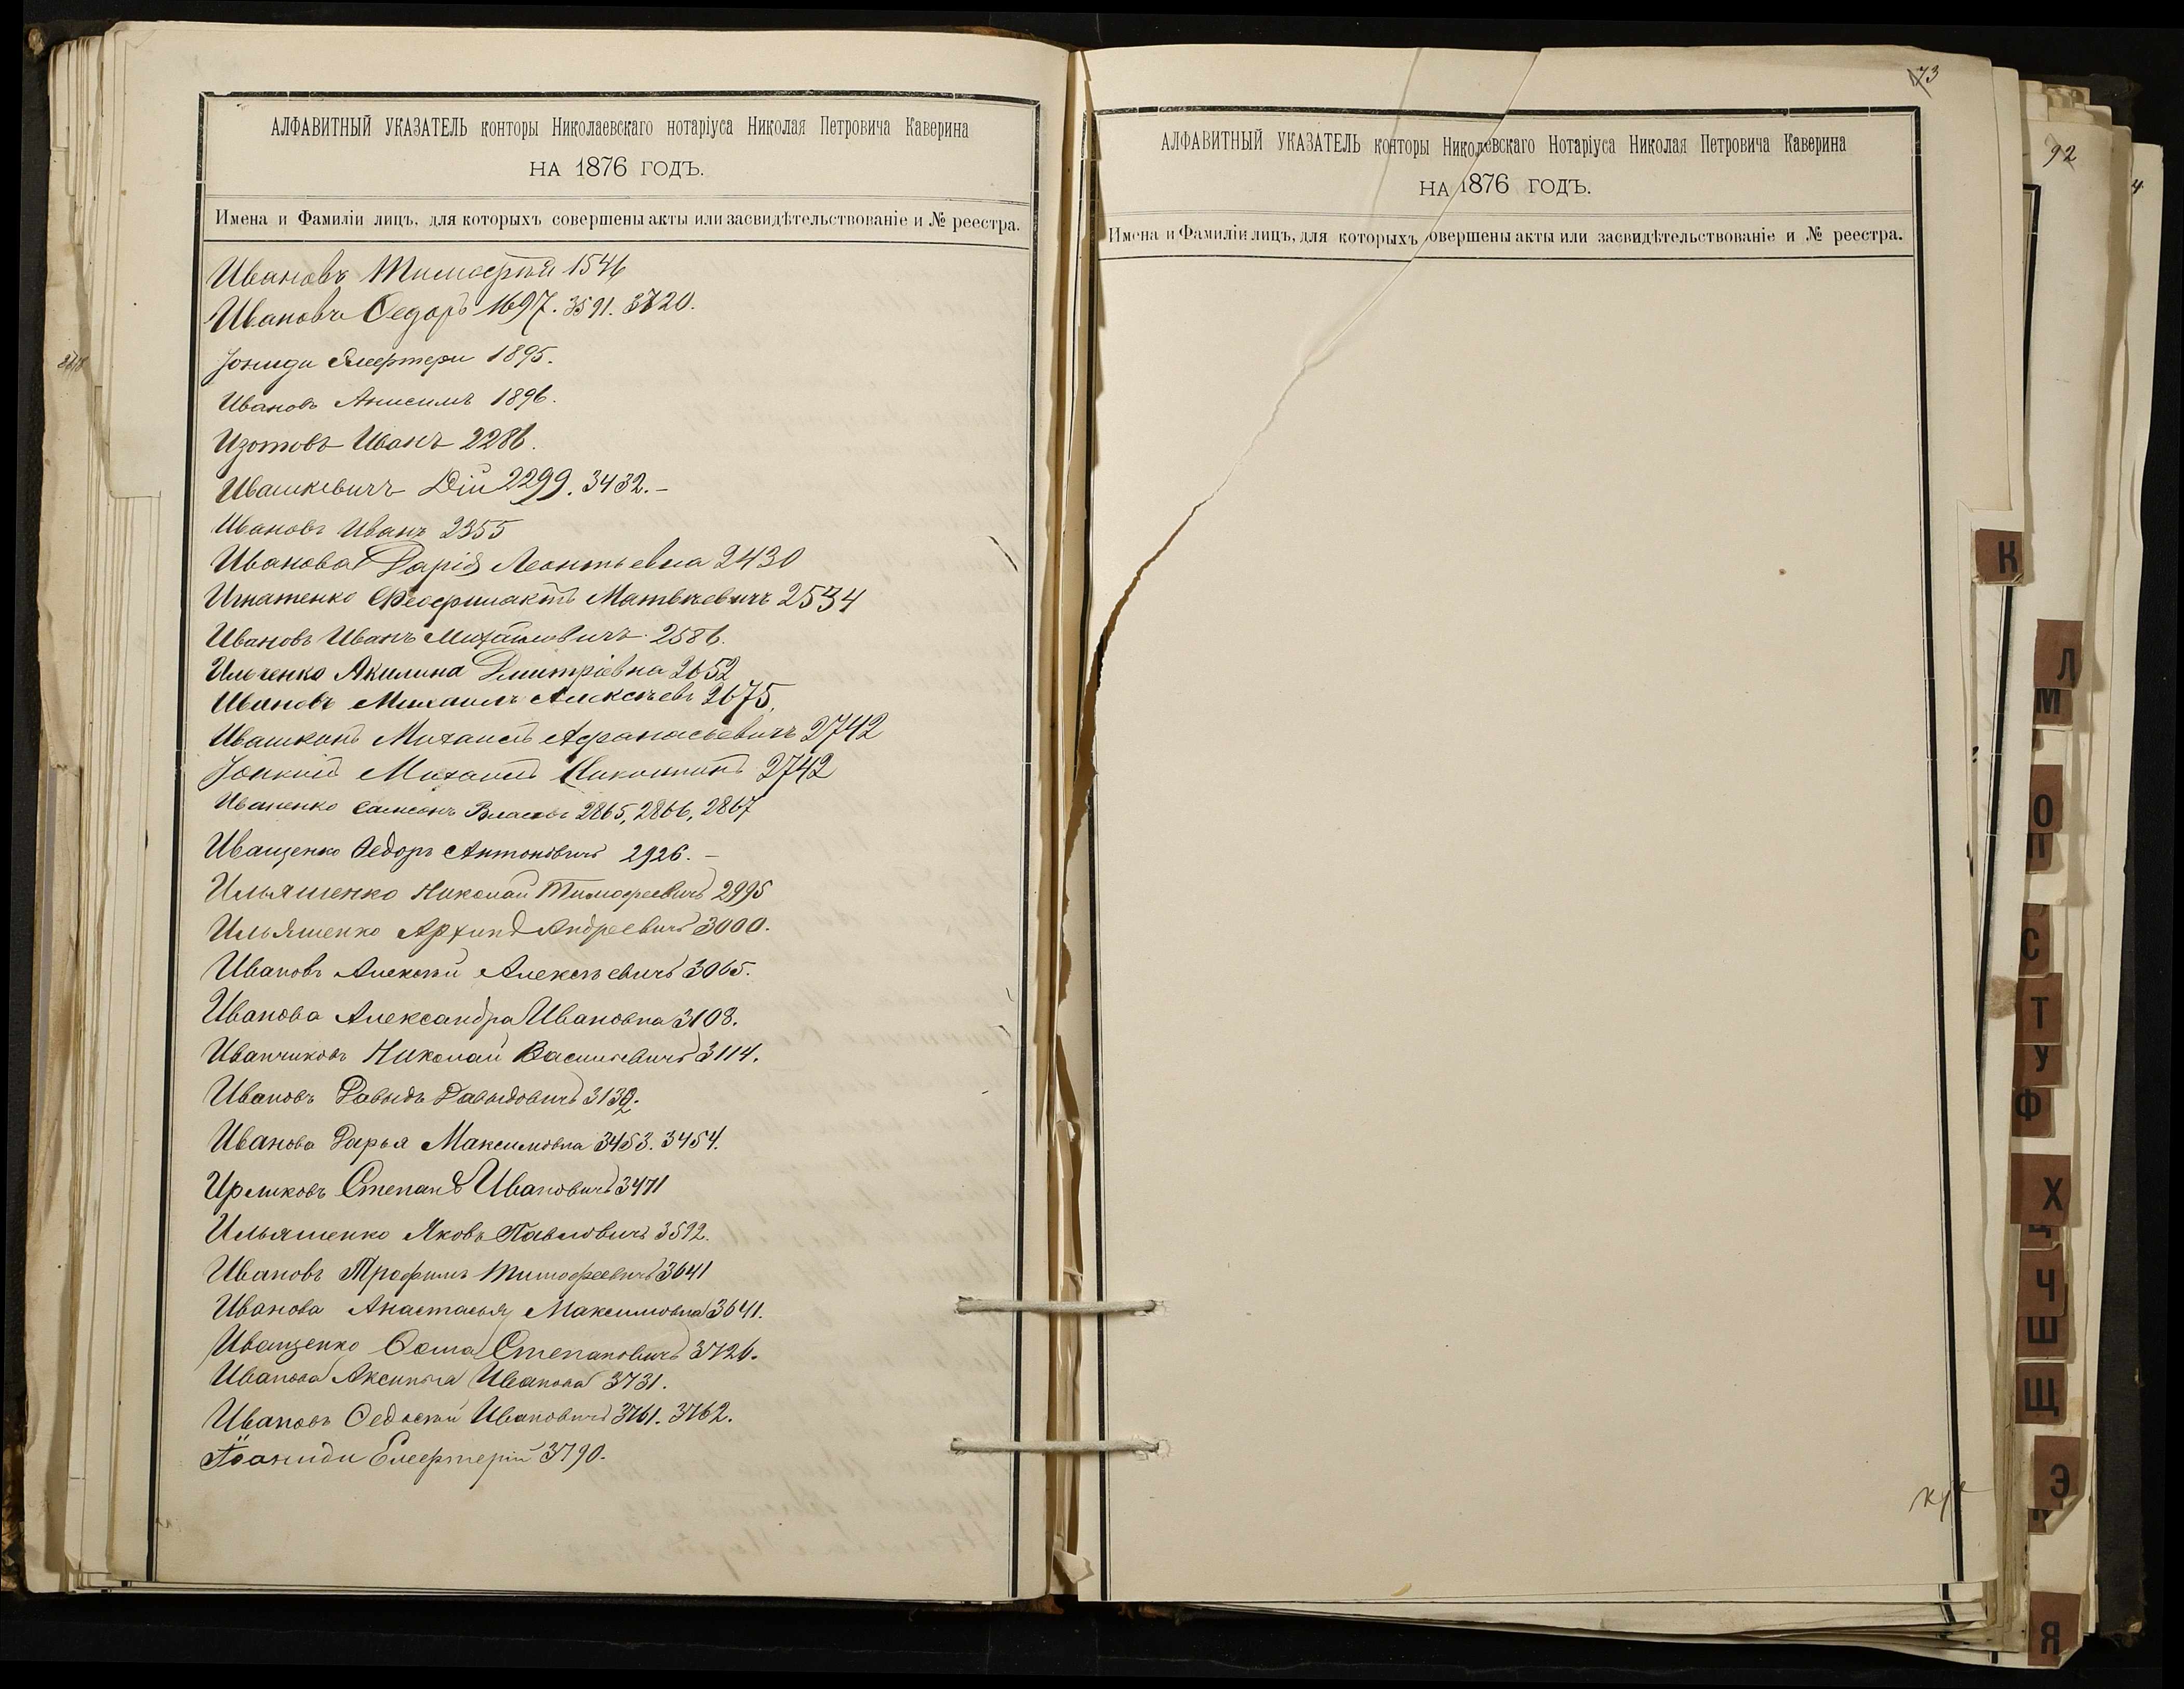 АЛФАВИТНЫЙ УКАЗАТЕЛЬ конторы Николаевскаго нотаріуса Николая Петровича Каверина
НА 1876 ГОДЪ.
Имена и Фамиліи лицъ, для которыхъ совершены акты или засвидѣтельствованіе и № реестра.
Ивановъ Тимофѣй 1546
Ивановъ Ѳедоръ 1697. 3591. 3720.
Іониди Елефтери 1895.
Ивановъ Анисимъ 1896.
Изотовъ Иванъ 2286.
Ивашкевичъ Дій 2299. 3432.-
Ивановъ Иванъ 2355
Иванова Дарія Леонтьевна 2430
Игнатенко Феофилактъ Матвѣевичъ 2534
Ивановъ Иванъ Михайловичъ 2586.
Ильченко Акилина Дмитріевна 2652
Ивановъ Михаилъ Алексѣевъ 2675.
Михаилъ Афанасьевичъ 2742
Михаилъ 2742
Иваненко Самсонъ Власовъ 2865, 2866, 2867
Иващенко Ѳедоръ Антоновичъ 2926. -
Ильяшенко Николай Тимофеевичъ 2995
Ильяшенко Архипъ Андреевичъ 3000.
Ивановъ Алексѣй Алексѣевичъ 3065.
Иванова Александра Ивановна 3108.
Иванчиковъ Николай Васильевичъ 3114.
Ивановъ Давыдъ Давыдовичъ 3132.
Иванова Дарья Максимовна 3453. 3454.
Степанъ Ивановичъ 3471
Ильяшенко Яковъ Павловичъ 3592.
Ивановъ Трофимъ Тимофеевичъ 3641
Иванова Анастасья Максимовна 3641.
Иващенко Ѳома Степановичъ 3726.
Иванова Аксинья Иванова 3731.
Ивановъ Ѳедосѣй Ивановичъ 3761. 3762.
Іоаниди Елефтерій 3790.
73
АЛФАВИТНЫЙ УКАЗАТЕЛЬ конторы Николаевскаго Нотаріуса Николая Петровича Каверина
НА 1876 ГОДЪ.
Имена и Фамиліи лицъ, для которыхъ совершены акты или засвидѣтельствованіе и № реестра.
92
К
Л
М
О
П
С
Т
У
Ф
Х
Ц
Ч
Ш
Щ
Э
Я